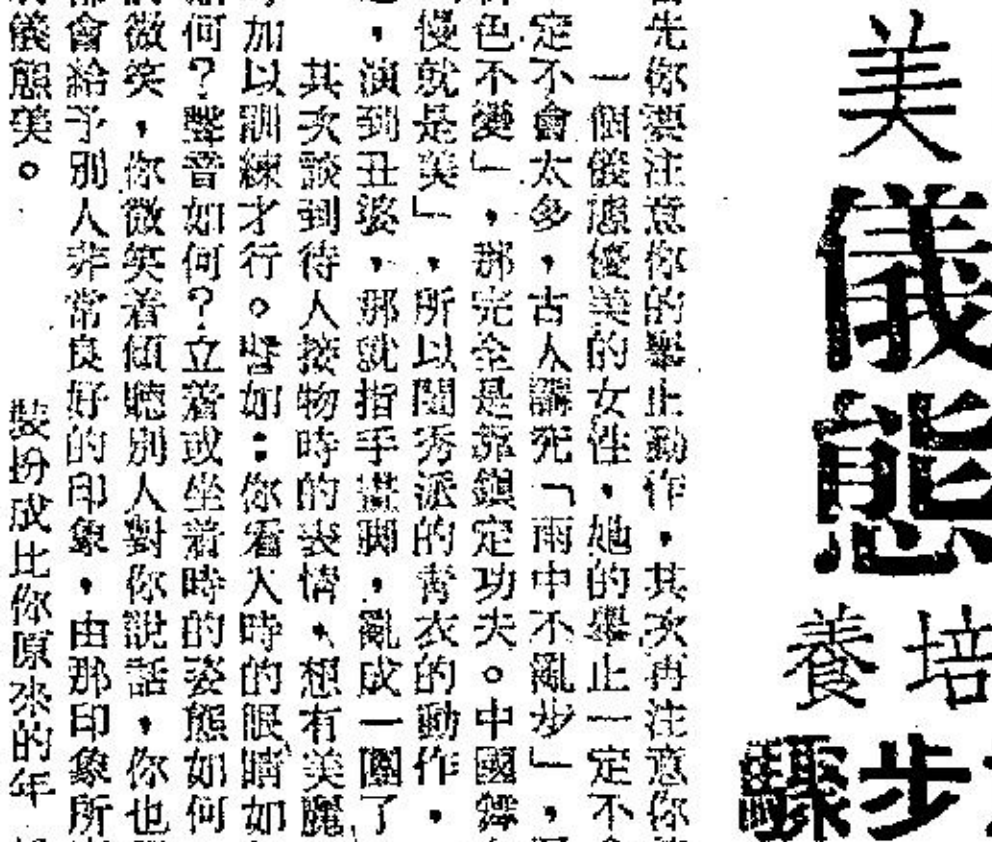 美儀態
培養
步驟
先你要注意你的舉止動作,其次再注意你
一個儀態優美的女性,她的舉止一定不
定不會太多,古人講究「雨中不亂步」,
色不變」,那完全是靠鎮定功夫。中國
慢就是美」,所以閨秀派的青衣的動作,
,演到丑婆,那就指手畫脚,亂成一團了
其次談到待人接物時的表情、想有美麗
加以訓練才行。譬如:你看人時的眼睛如
何?聲音如何?立着或坐着時的姿態如何
微笑,你微笑着傾聽別人對你說話,你也
會給予別人非常良好的印象,由那印象所
儀態美。
裝扮成比你原來的年